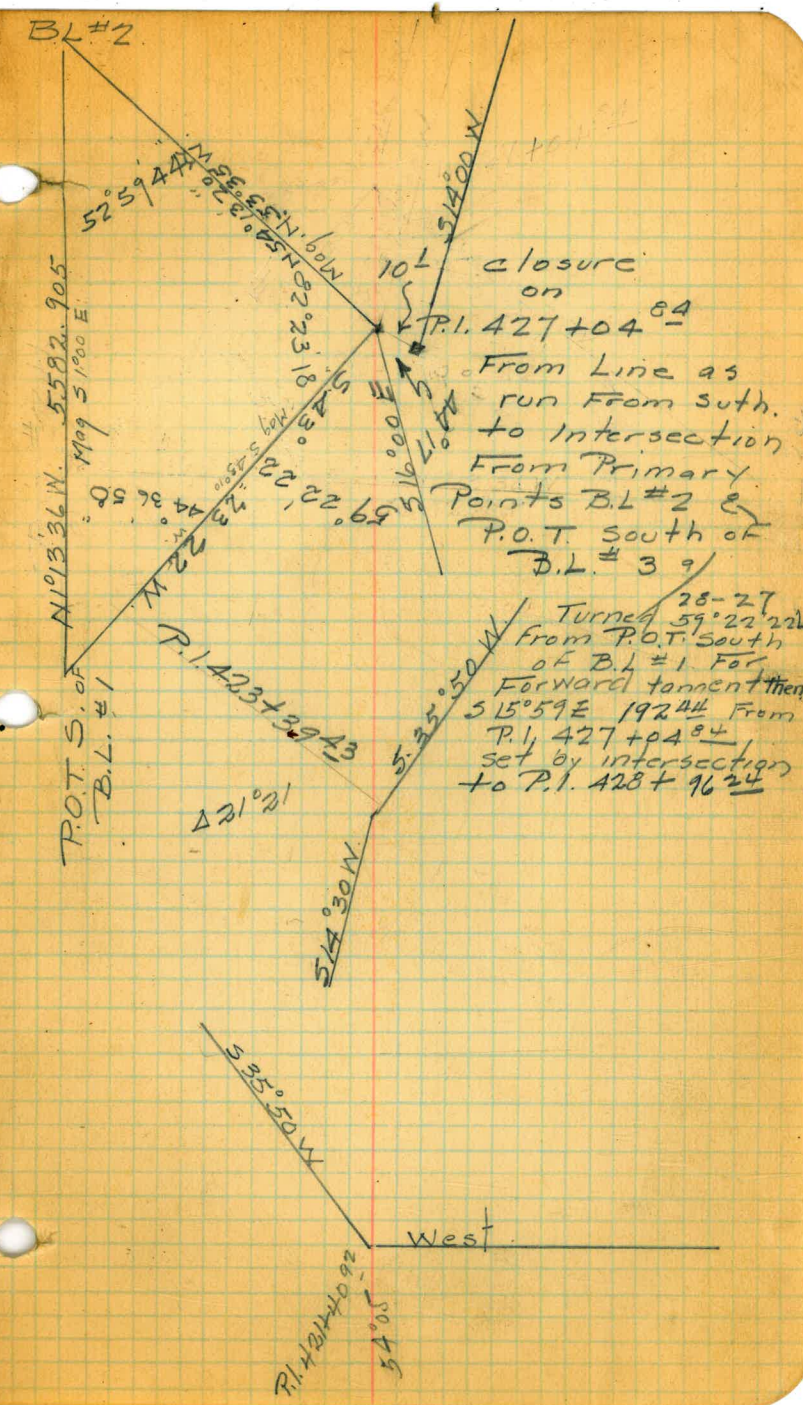 BL #2
N1°13'36"W. 5582.905
Mag S 1°00 E
52°59'44"
N54°13'20"W
Mag. N.53°35 W
82°23'18
S.43° 23' 22" W.
Mag S.43°10
44°36'58"
59°22'22
S16°00 E
S14°00 W.
10 L
closure
on
P.I. 427+04 84
From Line as
run From Suth.
to Intersection
From Primary
Points B.L #2 &
P.O.T. South of
B.L. #3
28-27
Turned 59°22'22L
From P.O.T. South
of B.L #1 For
Forward tannent then
S 15°59E 192 44 From
P.I. 427+04 84
set by intersection
to P.I. 428+96 24
P.O.T S. OF
B.L. #1
P.I. 423+39 43
Δ21°21
S.35°50 W.
S14°30 W.
S35°50 W
West
P.I. 421+40 92
54°05